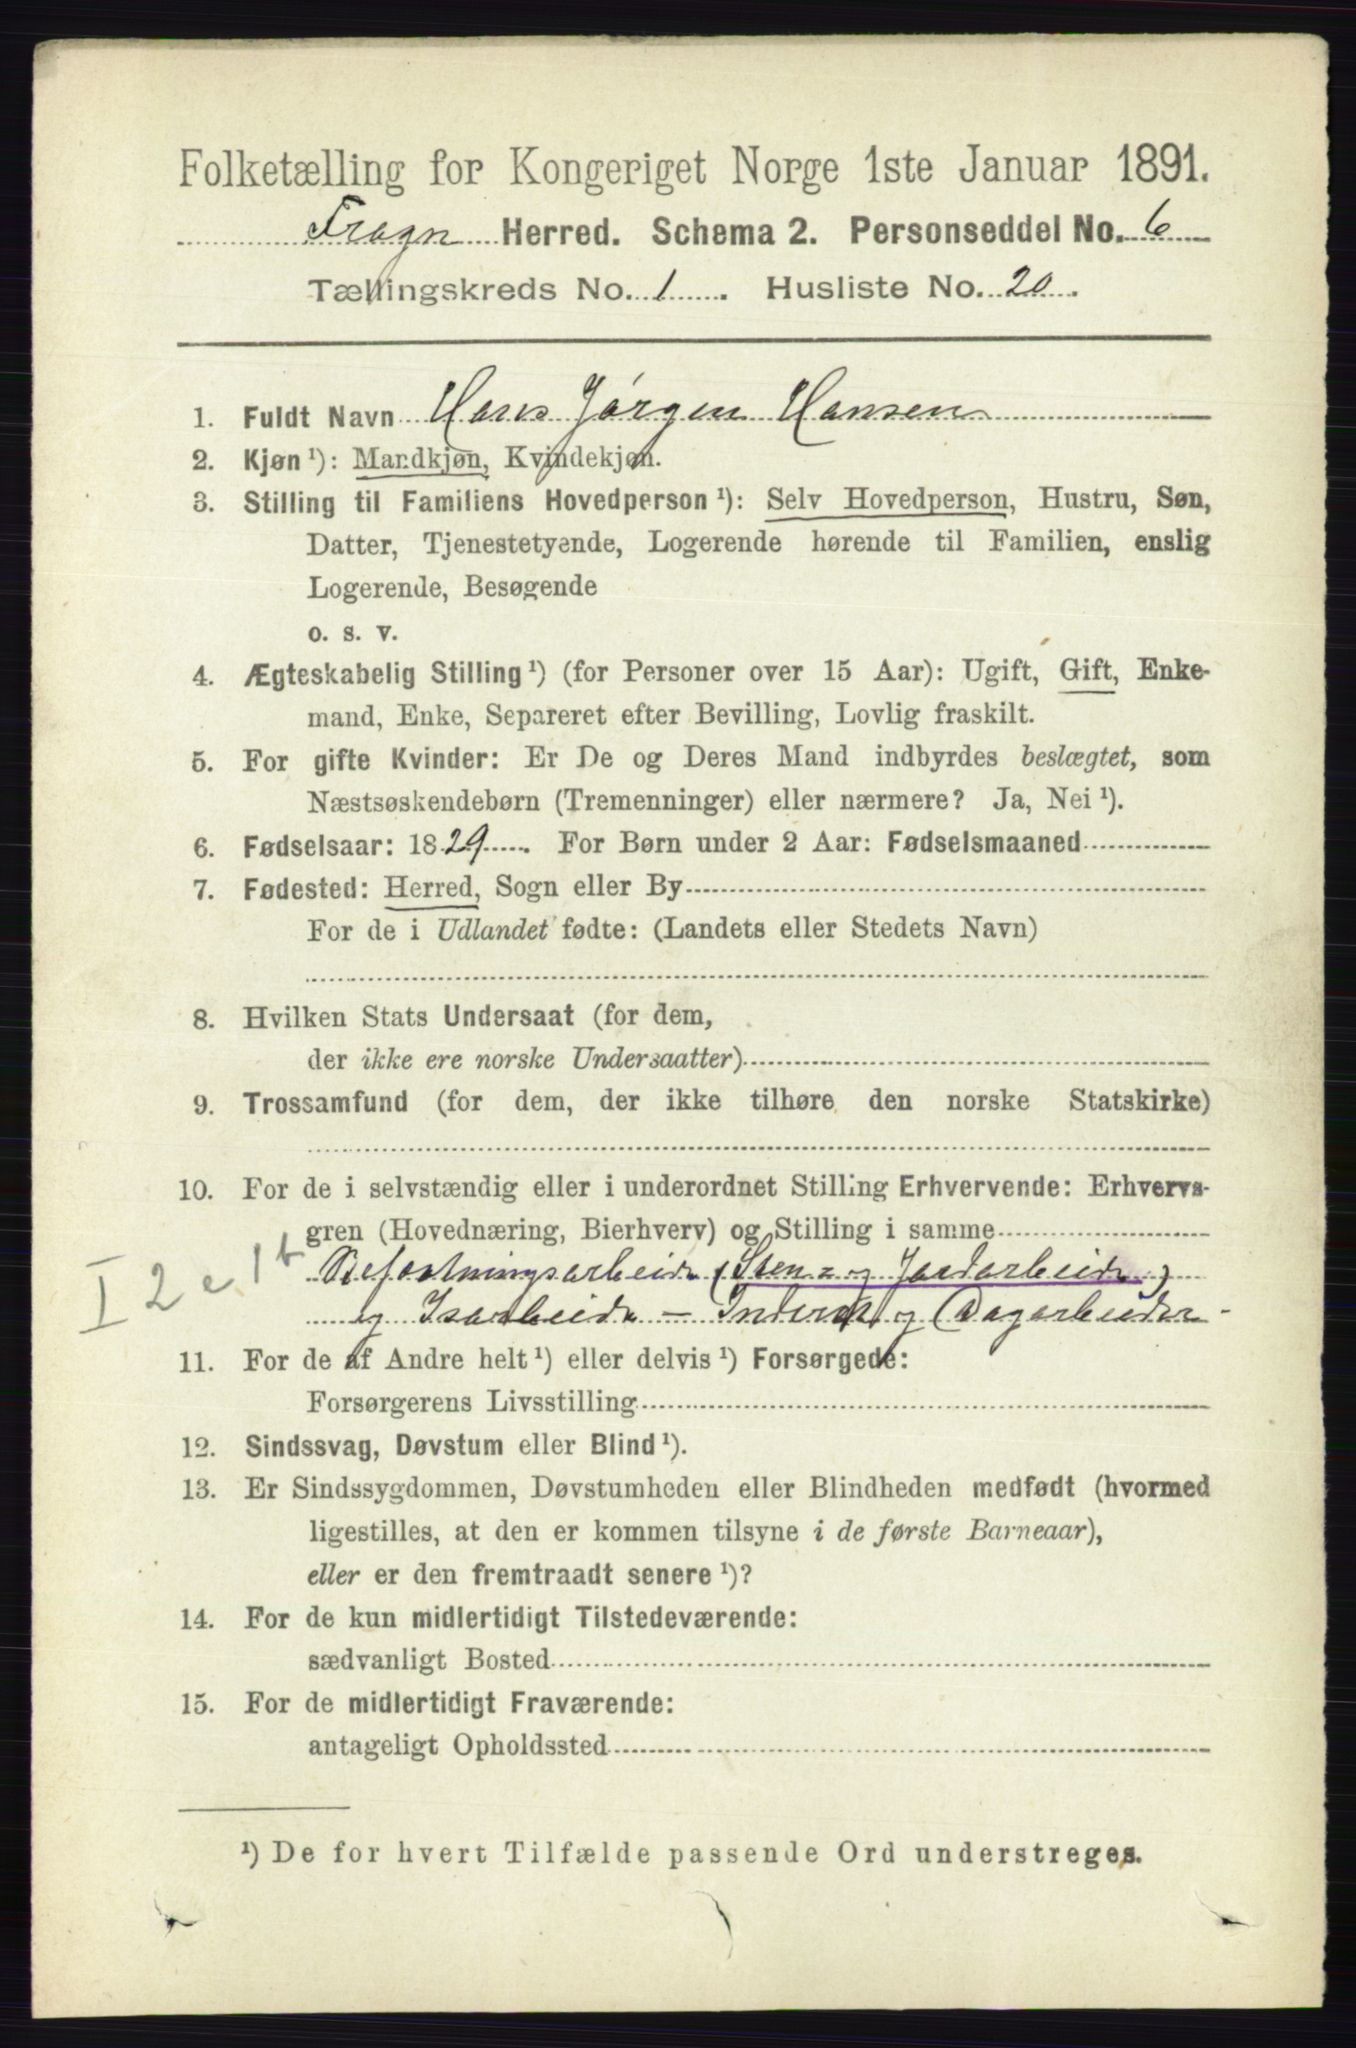 Folketælling for Kongeriget Norge 1ste Januar 1891.
Frogn Herred. Schema 2. Personseddel No. 6
Tællingskreds No. 1. Husliste No. 20.
1. Fuldt Navn Hans Jørgen Hansen
2. Kjøn¹): Mandkjøn, Kvindekjøn.
3. Stilling til Familiens Hovedperson¹): Selv Hovedperson, Hustru, Søn,
Datter, Tjenestetyende, Logerende hørende til Familien, enslig
Logerende, Besøgende
o. s. v.
4. Ægteskabelig Stilling¹) (for Personer over 15 Aar): Ugift, Gift, Enke-
mand, Enke, Separeret efter Bevilling, Lovlig fraskilt.
5. For gifte Kvinder: Er De og Deres Mand indbyrdes beslægtet, som
Næstsøskendebørn (Tremenninger) eller nærmere? Ja, Nei¹).
6. Fødselsaar: 1829. For Børn under 2 Aar: Fødselsmaaned
7. Fødested: Herred, Sogn eller By
For de i Udlandet fødte: (Landets eller Stedets Navn)
8. Hvilken Stats Undersaat (for dem,
der ikke ere norske Undersaatter)
9. Trossamfund (for dem, der ikke tilhøre den norske Statskirke)
10. For de i selvstændig eller i underordnet Stilling Erhvervende: Erhvervs-
gren (Hovednæring, Bierhverv) og Stilling i samme
I 2 e 1 t Befæstningsarbeide (Sten- og Jordarbeide)
og Isarbeide - og Dagarbeider -
11. For de af Andre helt¹) eller delvis¹) Forsørgede:
Forsørgerens Livsstilling
12. Sindssvag, Døvstum eller Blind¹).
13. Er Sindssygdommen, Døvstumheden eller Blindheden medfødt (hvormed
ligestilles, at den er kommen tilsyne i de første Barneaar),
eller er den fremtraadt senere¹)?
14. For de kun midlertidigt Tilstedeværende:
sædvanligt Bosted
15. For de midlertidigt Fraværende:
antageligt Opholdssted
¹) De for hvert Tilfælde passende Ord understreges.